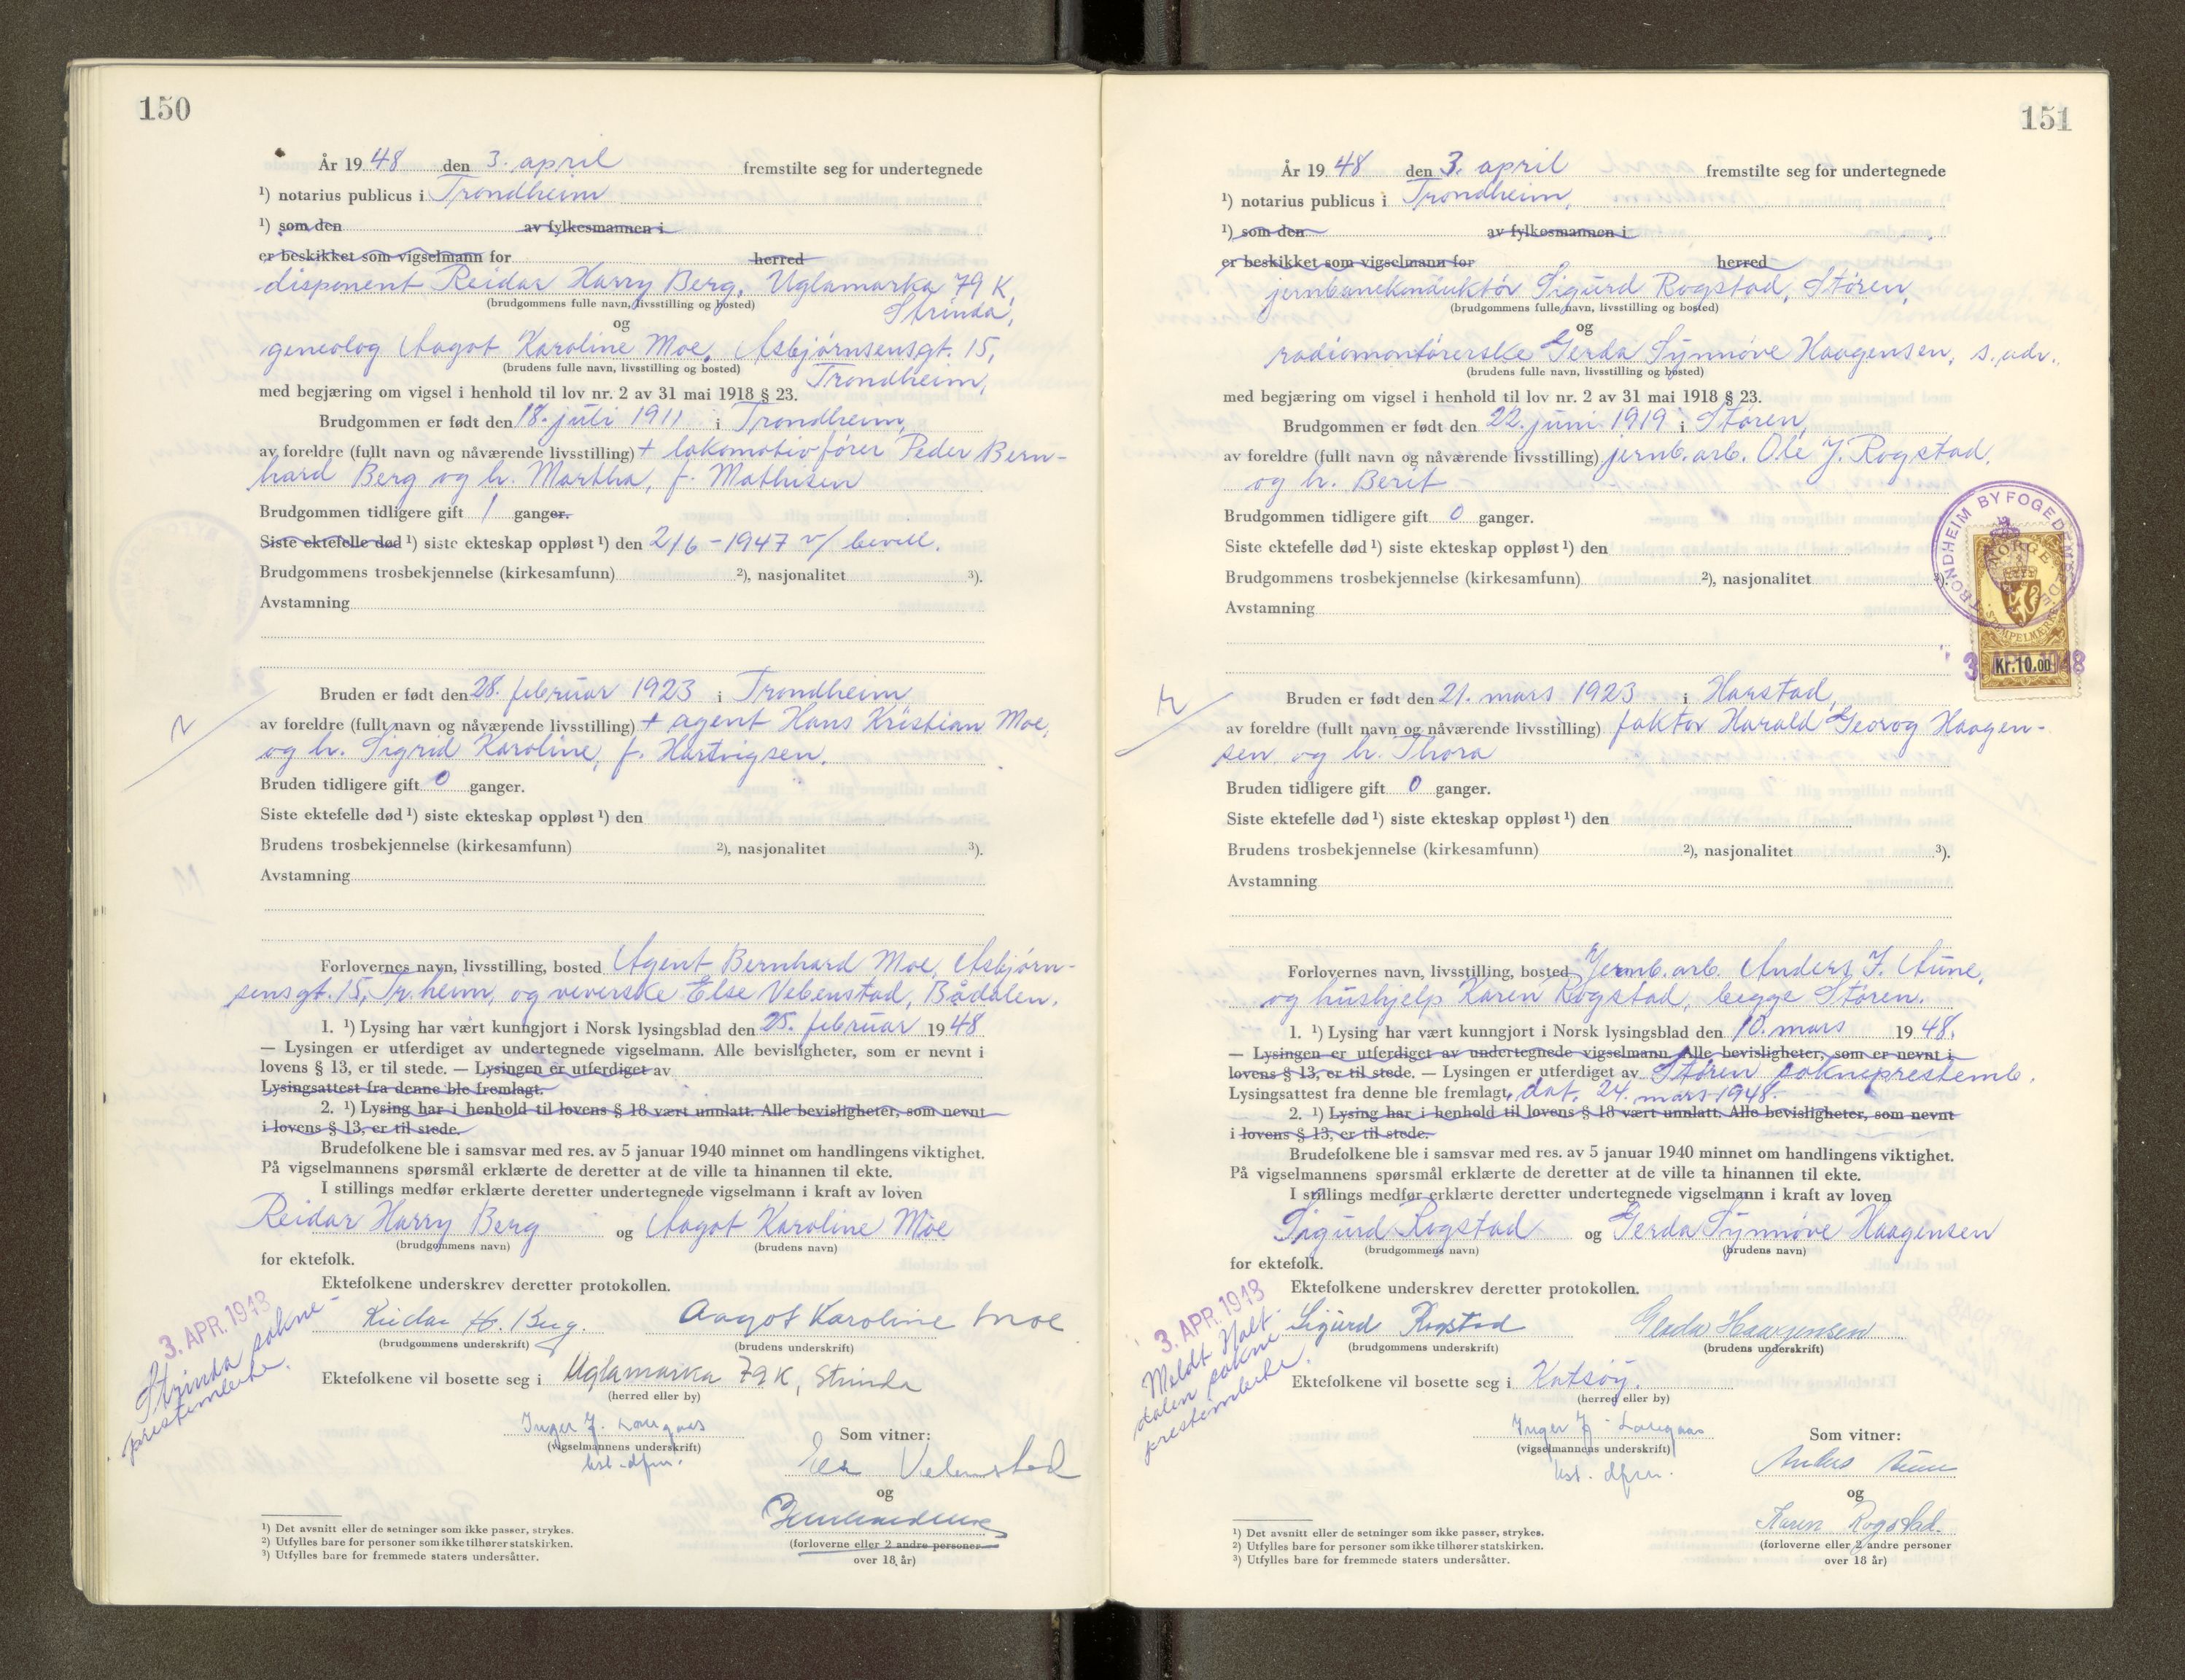 150
År 1948 den 3. april fremstilte seg for undertegnede
¹) notarius publicus i Trondheim
¹) som den av fylkesmannen i
er beskikket som vigselmann for herred
disponent Reidar Harry Berg, Uglamarka 79 K,
(brudgommens fulle navn, livsstilling og bosted) Strinda,
og
geneolog Aagot Karoline Moe, Asbjørnsensgt. 15,
(brudens fulle navn, livsstilling og bosted) Trondheim,
med begjæring om vigsel i henhold til lov nr. 2 av 31 mai 1918 § 23.
Brudgommen er født den 18. juli 1911 i Trondheim,
av foreldre (fullt navn og nåværende livsstilling) + lokomotivfører Peder Bern-
hard Berg og h. Martha, f. Mathisen
Brudgommen tidligere gift 1 ganger.
Siste ektefelle død ¹) siste ekteskap oppløst ¹) den 2/6 - 1947 v/ bevill.
Brudgommens trosbekjennelse (kirkesamfunn) ²), nasjonalitet ³).
Avstamning
Bruden er født den 28. februar 1923 i Trondheim
av foreldre (fullt navn og nåværende livsstilling) + agent Hans Kristian Moe,
og h. Sigrid Karoline, f. Hartvigsen.
Bruden tidligere gift 0 ganger.
Siste ektefelle død ¹) siste ekteskap oppløst ¹) den
Brudens trosbekjennelse (kirkesamfunn) ²), nasjonalitet ³).
Avstamning
Forlovernes navn, livsstilling, bosted Agent Bernhard Moe, Asbjørn-
sensgt. 15, Tr.heim, og veverske Else Vebenstad, Bådalen.
1. ¹) Lysing har vært kunngjort i Norsk lysingsblad den 25. februar 1948
— Lysingen er utferdiget av undertegnede vigselmann. Alle bevisligheter, som er nevnt i
lovens § 13, er til stede. — Lysingen er utferdiget av
Lysingsattest fra denne ble fremlagt.
2. ¹) Lysing har i henhold til lovens § 18 vært unnlatt. Alle bevisligheter, som nevnt
i lovens § 13, er til stede.
Brudefolkene ble i samsvar med res. av 5 januar 1940 minnet om handlingens viktighet.
På vigselmannens spørsmål erklærte de deretter at de ville ta hinannen til ekte.
I stillings medfør erklærte deretter undertegnede vigselmann i kraft av loven
Reidar Harry Berg og Aagot Karoline Moe
(brudgommens navn) (brudens navn)
for ektefolk.
Ektefolkene underskrev deretter protokollen.
3. APR. 1948
Strinda sokne-
prestembete.
Reidar H. Berg. Aagot Karoline Moe
(brudgommens underskrift) (brudens underskrift)
Ektefolkene vil bosette seg i Uglamarka 79 K, Strinda
(herred eller by)
Inger J.
(vigselmannens underskrift)
kst. dfm.
Som vitner:
og
(forloverne eller 2 andre personer
over 18 år)
¹) Det avsnitt eller de setninger som ikke passer, strykes.
²) Utfylles bare for personer som ikke tilhører statskirken.
³) Utfylles bare for fremmede staters undersåtter.
151
År 1948 den 3. april fremstilte seg for undertegnede
¹) notarius publicus i Trondheim,
¹) som den av fylkesmannen i
er beskikket som vigselmann for herred
jernbanekonduktør Sigurd Rogstad, Støren,
(brudgommens fulle navn, livsstilling og bosted)
og
radiomontørerske Gerda Synnøve Haagensen, s. adr.
(brudens fulle navn, livsstilling og bosted)
med begjæring om vigsel i henhold til lov nr. 2 av 31 mai 1918 § 23.
Brudgommen er født den 22. juni 1919 i Støren,
av foreldre (fullt navn og nåværende livsstilling) jernb.arb. Ole J. Rogstad
og h. Berit
Brudgommen tidligere gift 0 ganger.
Siste ektefelle død ¹) siste ekteskap oppløst ¹) den
Brudgommens trosbekjennelse (kirkesamfunn) ²), nasjonalitet ³).
Avstamning
TRONDHEIM BYFOGEDEMBEDE
NORGE
STEMPELMERKE
Kr.10.00
3 APR 1948
Bruden er født den 21. mars 1923 i Harstad,
av foreldre (fullt navn og nåværende livsstilling) faktor Harald Georg Haagen-
sen og h. Thora
Bruden tidligere gift 0 ganger.
Siste ektefelle død ¹) siste ekteskap oppløst ¹) den
Brudens trosbekjennelse (kirkesamfunn) ²), nasjonalitet ³).
Avstamning
Forlovernes navn, livsstilling, bosted Jernb.arb. Anders J. Aune,
og hushjelp Karen Rogstad, begge Støren.
1. ¹) Lysing har vært kunngjort i Norsk lysingsblad den 10. mars 1948.
— Lysingen er utferdiget av undertegnede vigselmann. Alle bevisligheter, som er nevnt i
lovens § 13, er til stede. — Lysingen er utferdiget av Støren sokneprestemb.
Lysingsattest fra denne ble fremlagt, dat. 24. mars 1948.
2. ¹) Lysing har i henhold til lovens § 18 vært unnlatt. Alle bevisligheter, som nevnt
i lovens § 13, er til stede.
Brudefolkene ble i samsvar med res. av 5 januar 1940 minnet om handlingens viktighet.
På vigselmannens spørsmål erklærte de deretter at de ville ta hinannen til ekte.
I stillings medfør erklærte deretter undertegnede vigselmann i kraft av loven
Sigurd Rogstad og Gerda Synnøve Haagensen
(brudgommens navn) (brudens navn)
for ektefolk.
Ektefolkene underskrev deretter protokollen.
3. APR. 1948
Meldt Halt-
dalen sokne
prestembete.
Sigurd Rogstad Gerda Haagensen
(brudgommens underskrift) (brudens underskrift)
Ektefolkene vil bosette seg i
(herred eller by)
Inger J.
(vigselmannens underskrift)
kst. dfm.
Som vitner:
Anders Aune
og
Karen Rogstad.
(forloverne eller 2 andre personer
over 18 år)
¹) Det avsnitt eller de setninger som ikke passer, strykes.
²) Utfylles bare for personer som ikke tilhører statskirken.
³) Utfylles bare for fremmede staters undersåtter.